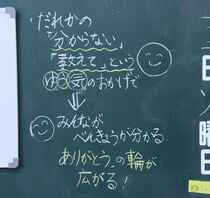 だれかの
「分からない」
「教えて」という
ゆう気のおかげで
⇓
みんなが
べんきょうが分かる
ありがとう。の輪が
広がる!
日
曜
日